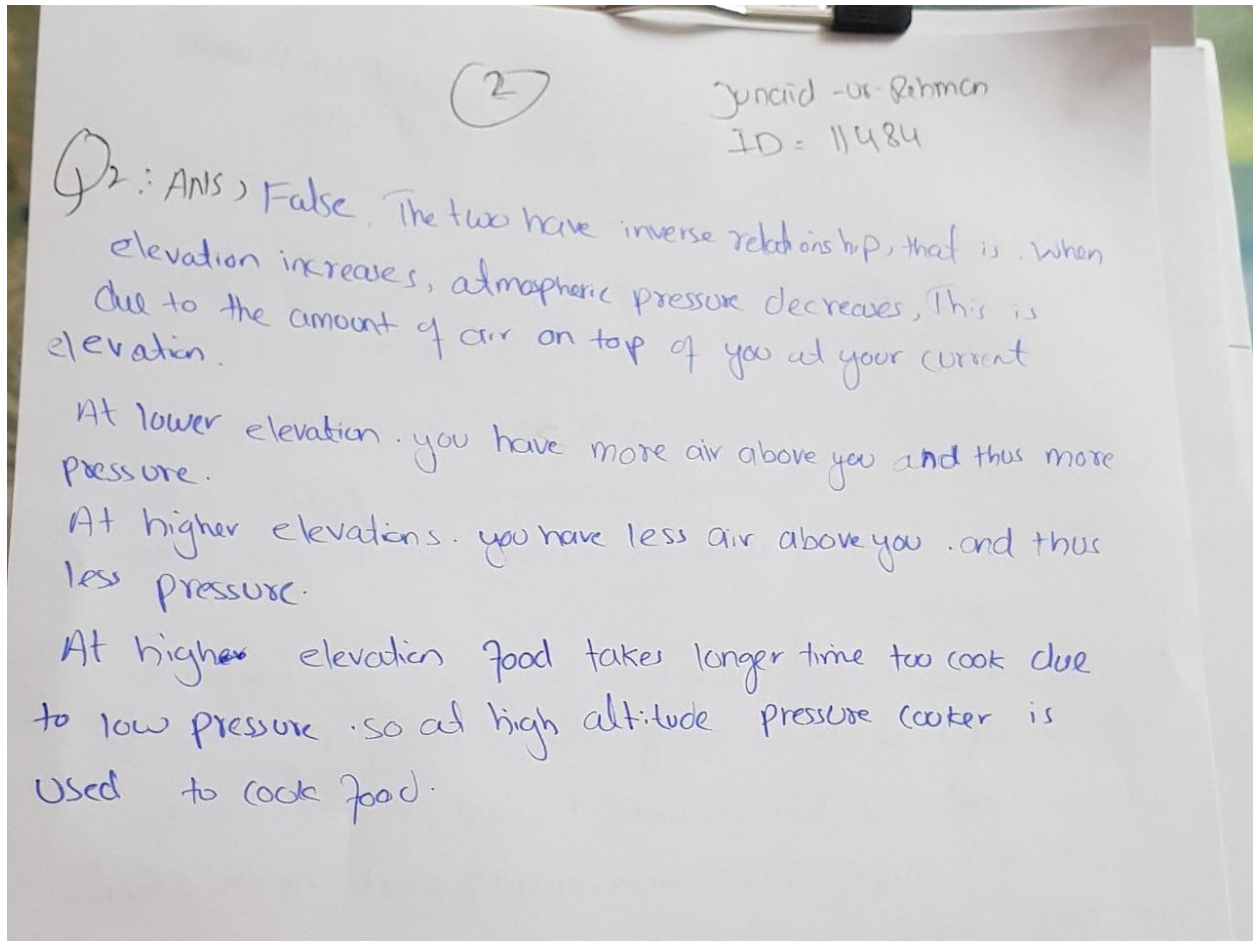 2
Junaid-ur-Rehman
ID = 11484
Q2: ANS, False, The two have inverse relationship, that is. When
elevation increases, atmospheric pressure decreaes, This is
due to the amount of air on top of you at your current
elevation.
At lower elevation. you have more air above you and thus more
pressure.
At higher elevations. you have less air above you. and thus
less pressure.
At higher elevation food takes longer time too cook due
to low pressure. so at high altitude pressure cooker is
used to cook food.